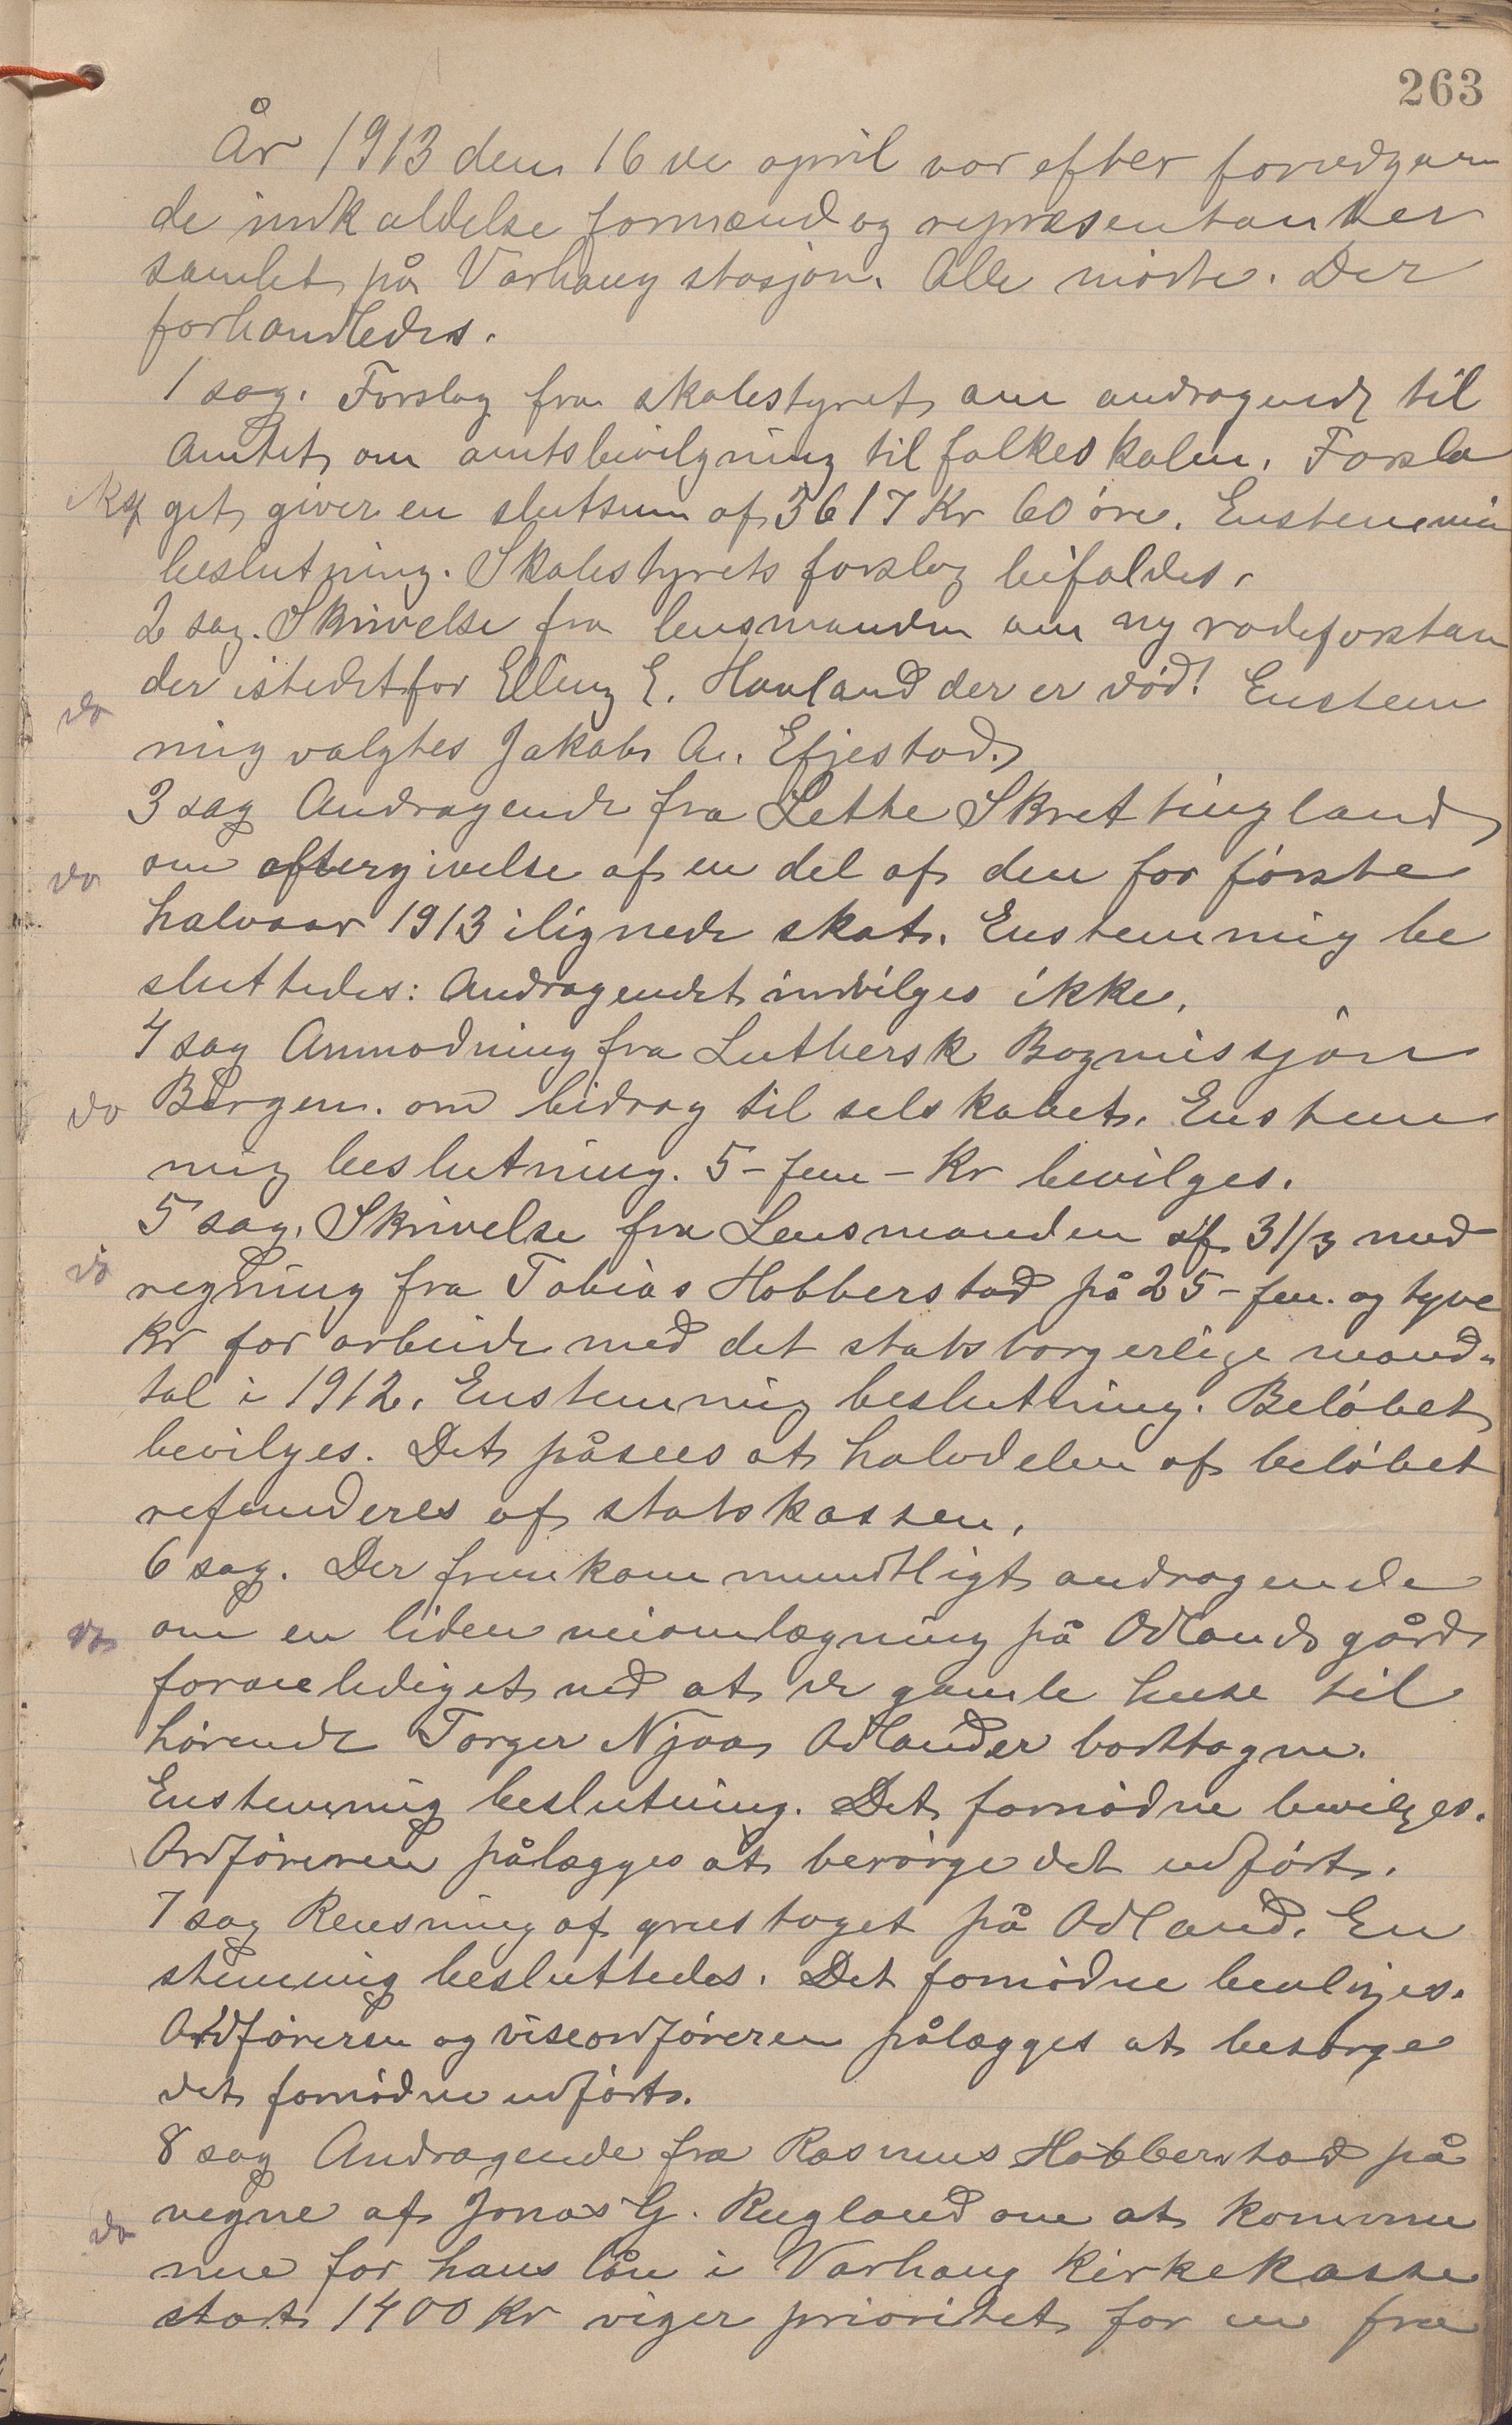 263
År 1913 den 16 de april var efter foredgaaen
de indkaldelse formænd og representanter
samlet på Varhaug stasjon. Alle mødte. Der
forhandledes.
1 sag. Forslag fra skolestyret om andragende til
Amtet om amtsbevilgning til folkeskolen. Forsla
get giver en slutsum af 3617 Kr 60 øre. Enstemmig
beslutning. Skolestyrets forslag bifaldes.
2 sag. Skrivelse fra lensmanden om ny rodeforstan
der istedetfor Elling E. Hauland der er død! Enstem
do
mig valgtes Jakob A. Efjestad.
3 sag Andragende fra Lethe Skrettingland
do om eftergivelse af en del af den for første
halvaar 1913 ilignede skat. Enstemmig be
sluttedes: Andragendet indvilges ikke.
4 sag Anmodning fra Luthersk Bogmissjon
do Bergen. om bidrag til selskabet. Enstem
mig beslutning. 5 - fem - Kr bevilges.
5 sag. Skrivelse fra Lensmanden af 31/3 med
do regning fra Tobias Hobberstad på 25 - fem. og tyve
Kr for arbeide med det statsborgerlige mand-
tal i 1912. Enstemmig beslutning. Beløbet
bevilges. Det påsees at halvdelen af beløbet
refunderes af statskassen.
6 sag. Der fremkom mundtligt andragende
do om en liden veiomlægning på Odlands gård
foranlediget ved at de gamle huse til
hørende Torger Njaa Odland er borttagne.
Enstemmig beslutning. Det fornødne bevilges.
Ordføreren pålægges at besørge det udført.
7 sag Rensning af grustaget på Odland. En
stemmig besluttedes. Det fornødne bevliges.
Ordføreren og viseordføreren pålægges at besørge
det fornødne udført.
8 sag Andragende fra Rasmus Hobberstad på
vegne af Jonas G. Rugland om at Kommu
do
nne for hans lån i Varhaug Kirkekasse
stort 1400 Kr viger prioritet for en fra